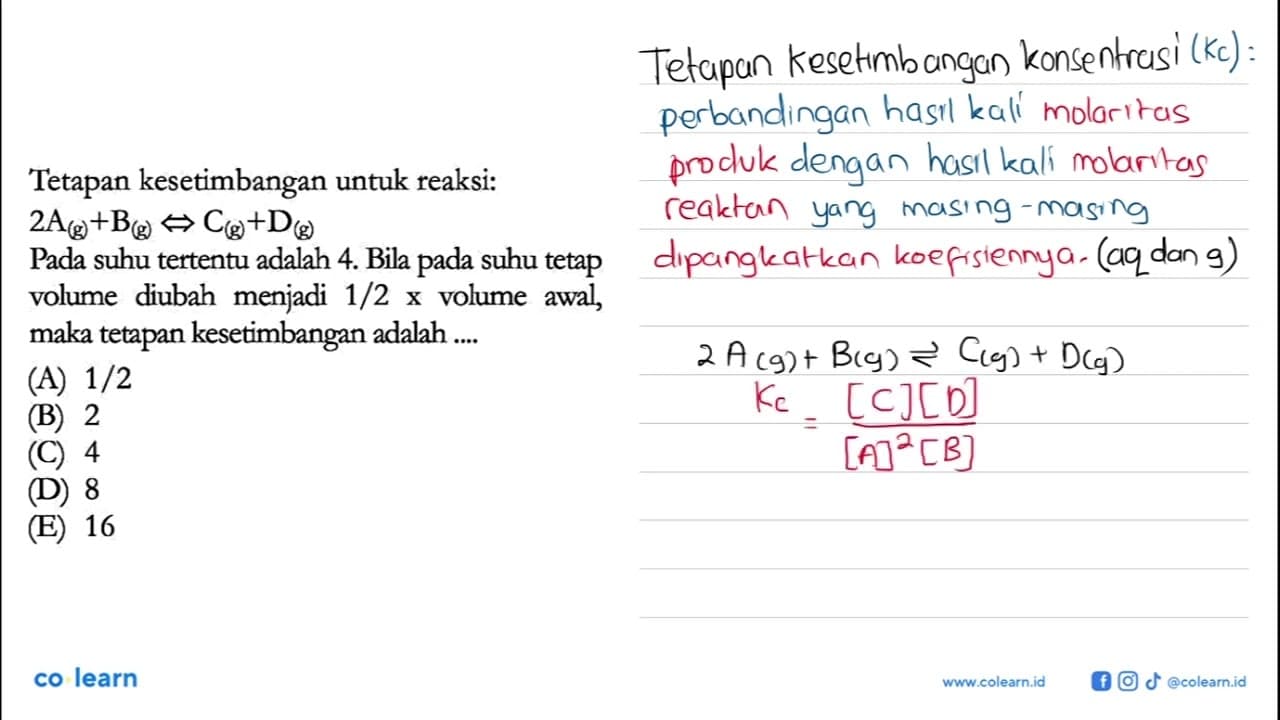 Tetapan kesetimbangan untuk reaksi:
2A(g)+B(g) ⇔ C(g)+D(g)
Pada suhu tertentu adalah 4. Bila pada suhu tetap
volume diubah menjadi 1/2 x volume awal,
maka tetapan kesetimbangan adalah ....
(A) 1/2
(B) 2
(C) 4
(D) 8
(E) 16
Tetapan kesetimbangan konsentrasi (Kc):
perbandingan hasil kali molaritas
produk dengan hasil kali molaritas
reaktan yang masing-masing
dipangkatkan koefisiennya. (aq dan g)
2 A(g) + B(g) ⇌ C(g) + D(g)
Kc = [C][D]
[A]² [B]
co learn
www.colearn.id
@colearn.id